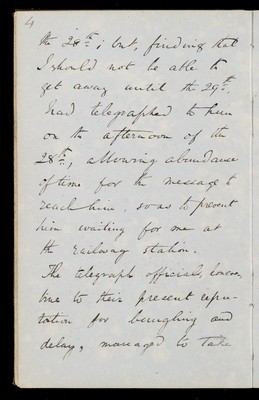 4
the 28th; but, finding that
I should not be able to
get away until the 29th,
had telegraphed to him
on the afternoon of the
28th, allowing abundance
of time for the message to
reach him, so as to prevent
him waiting for me at
the railway station.
The telegraph officials, however,
true to their present repu-
tation for bungling and
delay, managed to take